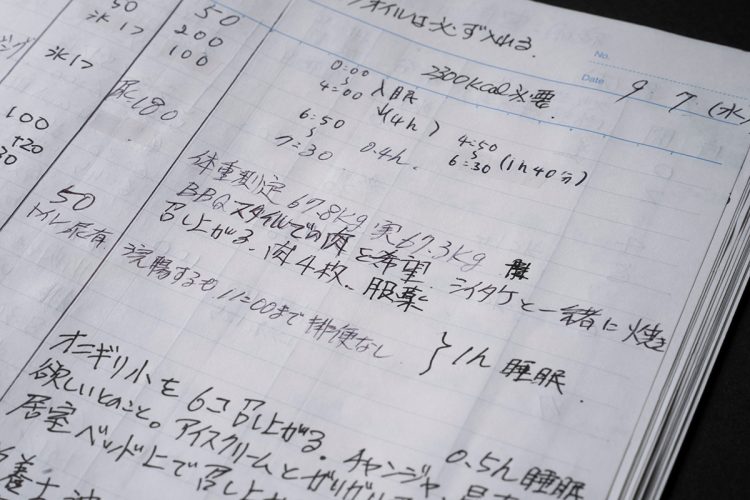 50
氷1つ
氷1つ
100
+20
30
50
200
100
尿180
50
トイレ尿有
オイルは必ず入れる。
2300kcal必要
No.
Date 9・7(水)
0:00
4:00 入眠
(4h)
6:50
7:30 0.4h.
4:50
6:30 (1h40分)
体重測定 67.8kg 実67.3kg
BBQスタイルでの肉を希望 シイタケと一緒に焼き
召し上がる。肉4枚、服薬
浣腸するも 11:00まで排便なし
}1h 睡眠
オニギリ小を6コ召し上がる。チャンジャ
欲しいとのこと。アイスクリームとガリガリ
居室ベッド上で召し上
0.5h 睡眠
養士